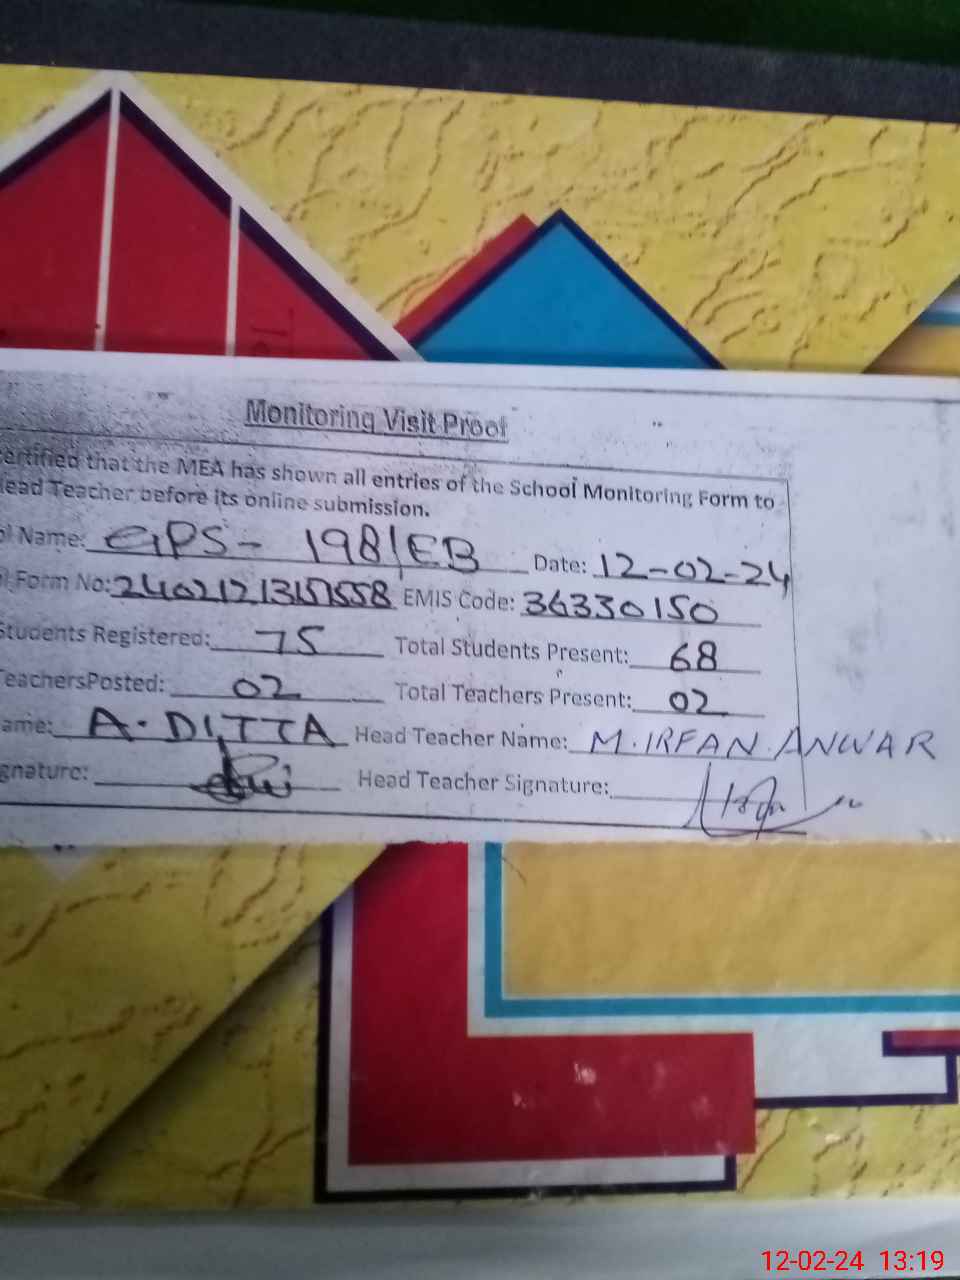 Monitoring Visit Proof
ertified that the MEA has shown all entries of the School Monitoring Form to
ead Teacher before its online submission.
ol Name: GPS- 198/EB Date: 12-02-24
Form No: EMIS Code: 36330150
Students Registered: 75 Total Students Present: 68
TeachersPosted: 02 Total Teachers Present: 02
ame: A. DITTA Head Teacher Name: M. IRFAN. ANWAR
gnature: Head Teacher Signature:
12-02-24 13:19